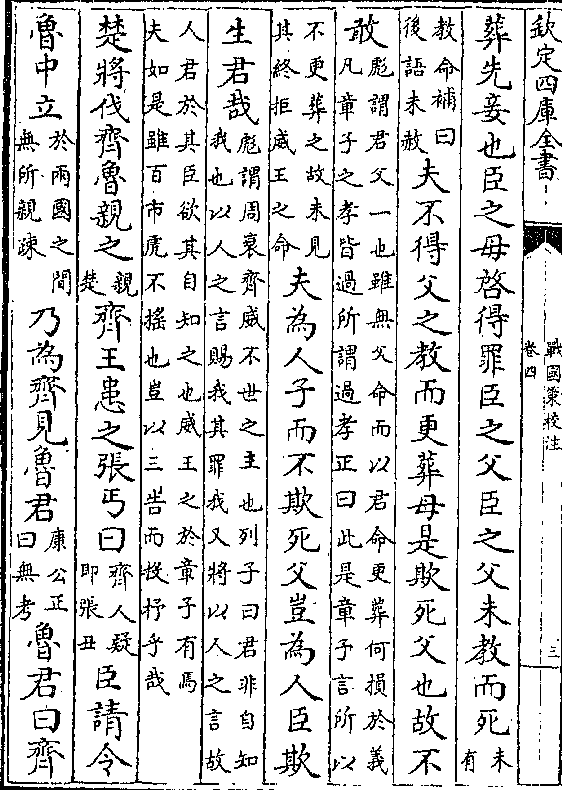 欽定四庫全書
戰國策校注
卷四
三
葬先妾也臣之母啓得罪臣之父臣之父未教而死未有
教命補曰後語未赦夫不得父之教而更葬母是欺死父也故不
敢彪謂君父一也雖無父命而以君命更葬何損於義凡章子之孝皆過所謂過孝正曰此是章子言所以
不更葬之故未見其終拒威王之命夫為人子而不欺死父豈為人臣欺
生君哉彪謂周衰齊威不世之主也列子曰君非自知我也以人之言賜我其罪我又將以人之言故
人君於其臣欲其自知之也威王之於章子有焉夫如是雖百市虎不搖也豈以三告而投杼乎哉
楚將伐齊魯親之親楚齊王患之張丐曰齊人疑即張丑臣請令
魯中立於兩國之間無所親疎乃為齊見魯君康公正曰無考魯君曰齊